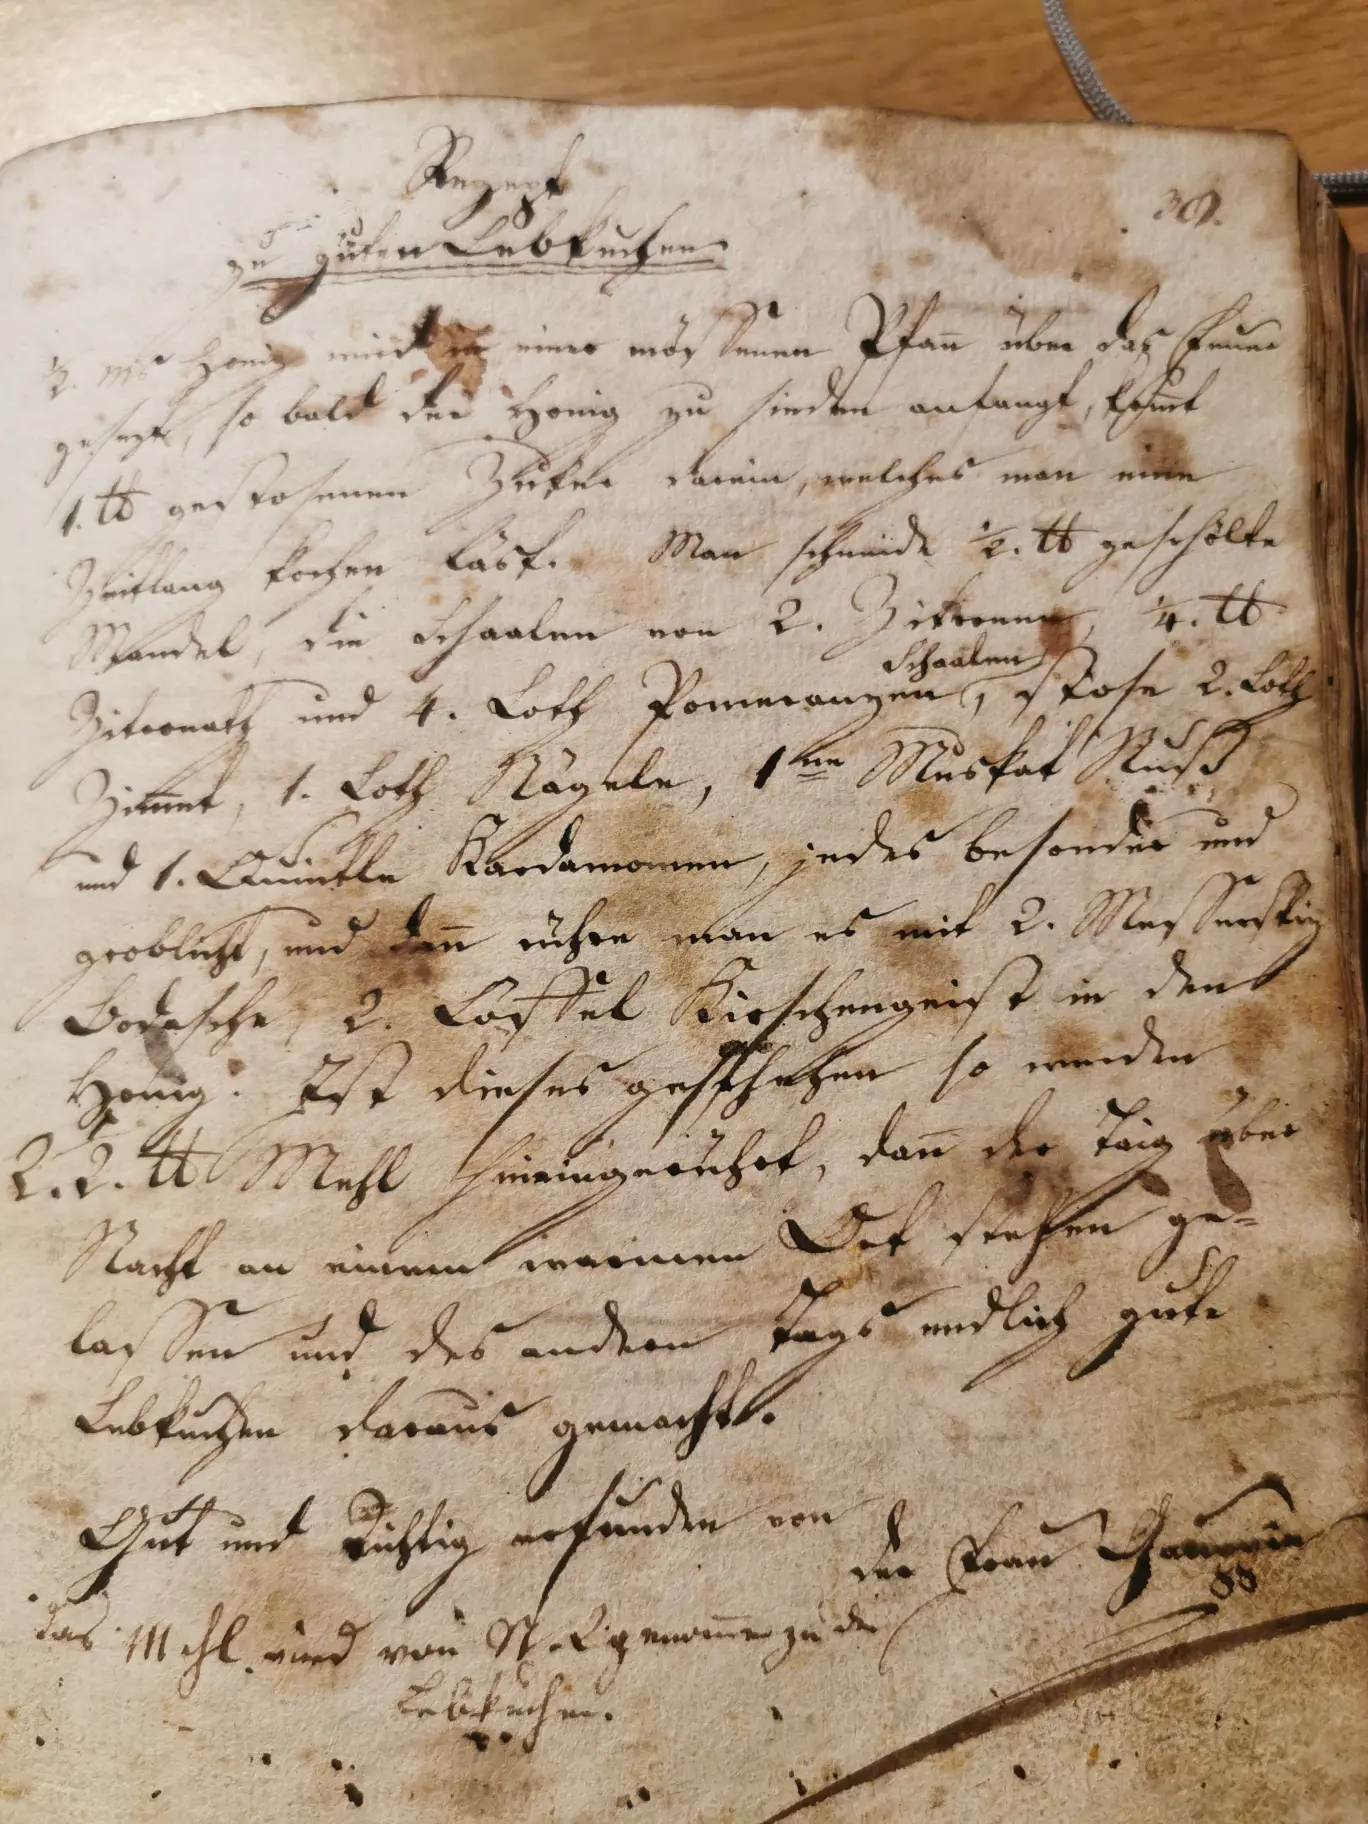 Rezept
39.
zu guten Lebkuchen
1/2. ms Honig wird in einer mössenen Pfañ über das Feuer
gesezt, so bald der Honig zu sieden anfangt, komt
1. ℔ gestosenen Zuker darein, welches man eine
Zeitlang kochen läst. Man schneide 1/2. ℔ geschölte
Mandel, die Schaalen von 2. Zitronen, 1/4. ℔
Zitronath und 4. Loth Pomeranzen, stose 2. Loth
Schaalen
Zimmet, 1. Loth Nägele, 1ne Muskat Nuß
und 1. Quintle Kardamomen, jedes besonder und
groblicht, und dañ rühre man es mit 2. Messerspiz
Bodasche, 2. Löffel Kirschengeist in den
Honig. Ist dieses geschehen so werden
2.1/2. ℔ Mehl hineingerührt, dañ der Taig über
Nacht an einem warmen Ort stehen ge=
lassen und des andern Tags endlich gute
Lebkuchen daraus gemacht.
Gut und Richtig erfunden von
der Frau
das Mehl wird von N. genomen zu den
Lebkuchen.